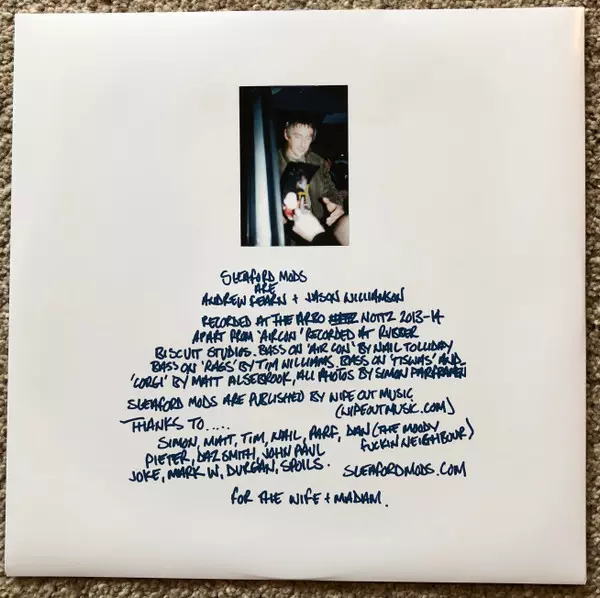 SLEAFORD MODS
ARE
ANDREW FEARN + JASON WILLIAMSON
RECORDED AT THE ARBO NOTTZ 2013-14
APART FROM 'AIRCON' RECORDED AT RUBBER
BISCUIT STUDIOS. BASS ON 'AIR CON' BY NAIL TOLLIDAY
BASS ON 'RAGS' BY TIM WILLIAMS. BASS ON 'TISWAS' AND
'CORGI' BY MATT ALSEBROOK, ALL PHOTOS BY SIMON PARFREMEN
SLEAFORD MODS ARE PUBLISHED BY WIPE OUT MUSIC
(WIPEOUTMUSIC.COM)
THANKS TO.....
SIMON, MATT, TIM, NAIL, PARF, DAN (THE MOODY
FUCKIN NEIGHBOUR)
PIETER, DAZ SMITH, JOHN PAUL
JOKE, MARK W, DURGAN, SPOILS.
SLEAFORDMODS.COM
FOR THE WIFE + MADAM.